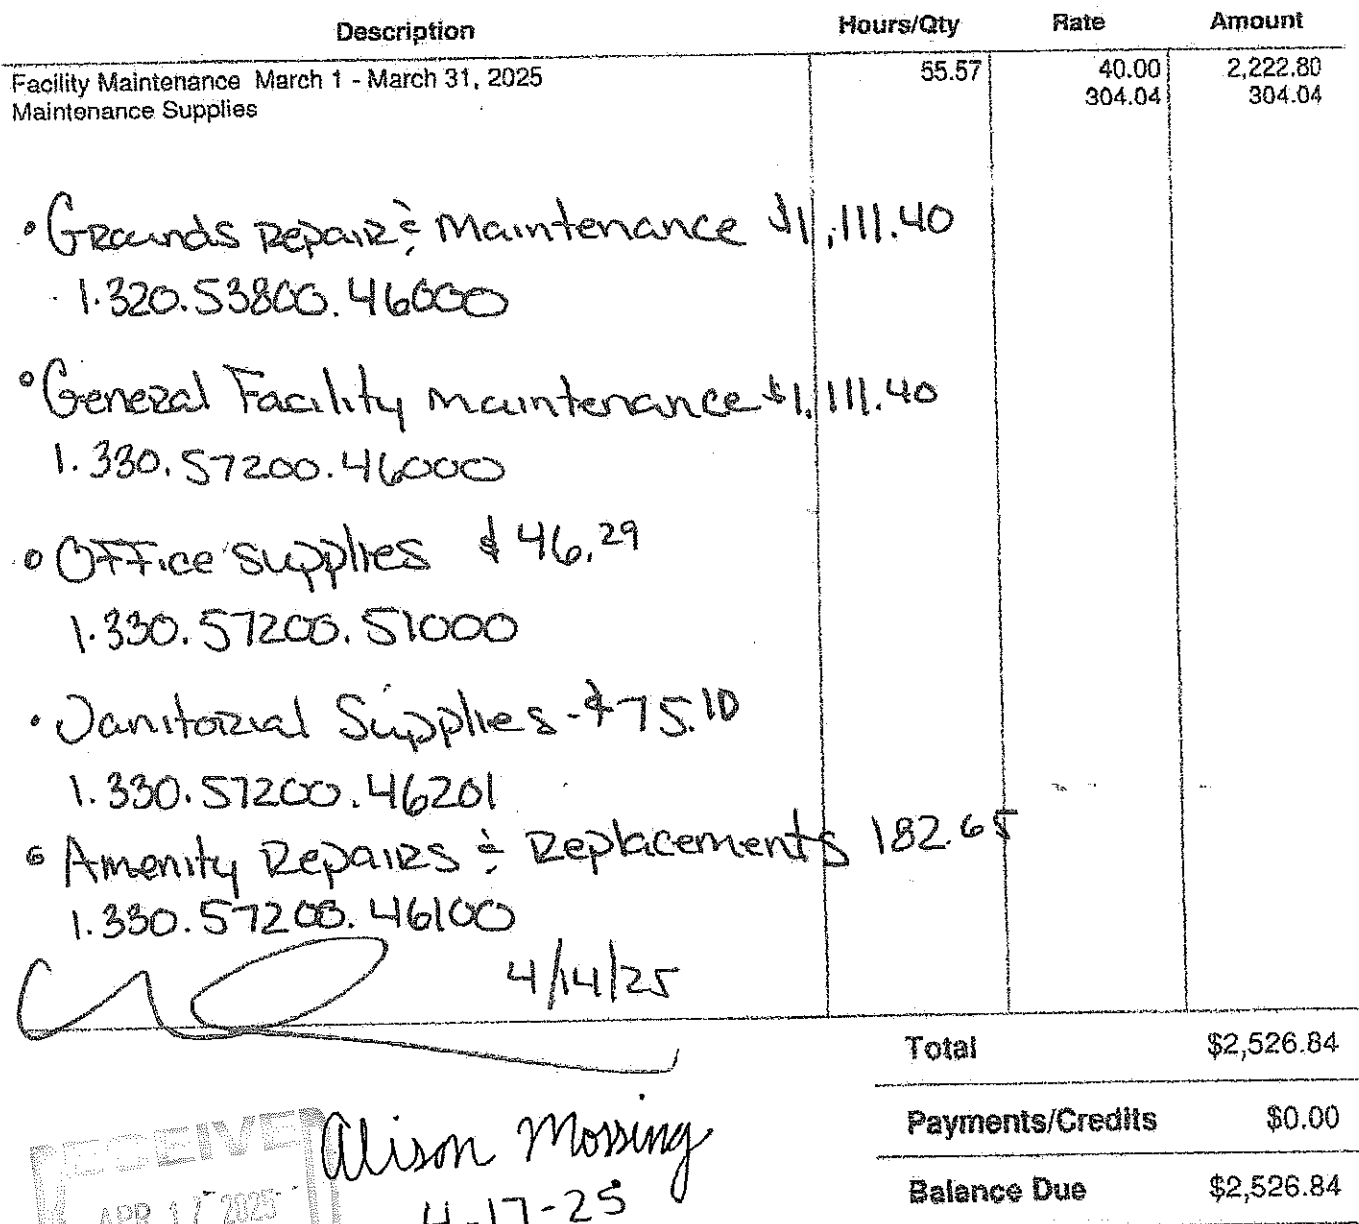 Description Hours/Qty Rate Amount
Facility Maintenance March 1 - March 31, 2025 55.57 40.00 2,222.80
Maintenance Supplies 304.04 304.04
• Grounds Repair & Maintenance $1,111.40
1.320.53800.46000
• General Facility Maintenance $1,111.40
1.330.57200.46000
• Office Supplies $46.29
1.330.57200.51000
• Janitorial Supplies - $75.10
1.330.57200.46201
• Amenity Repairs & Replacements 182.65
1.330.57200.46100
4/14/25
Total $2,526.84
Payments/Credits $0.00
Balance Due $2,526.84
Alison Mossing
4-17-25
RECEIVE
APR 17 2025